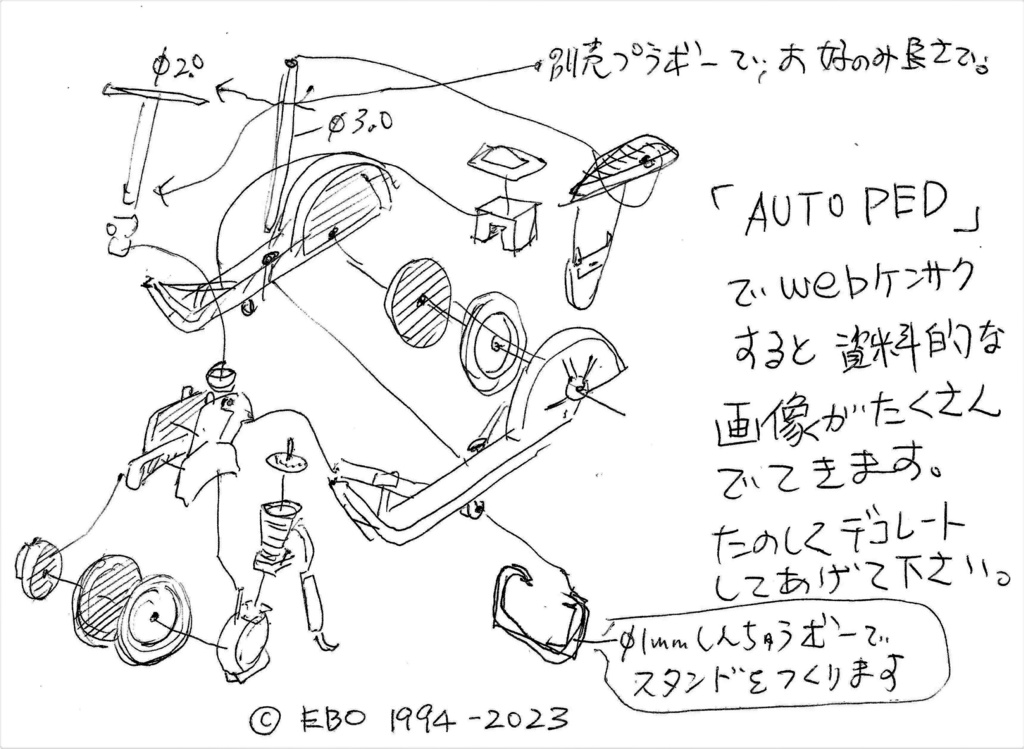 φ2.0
別売プラボーで、お好のみ長さで。
φ3.0
「AUTO PED」
でwebケンサク
すると資料的な
画像がたくさん
でてきます。
たのしくデコレート
してあげて下さい。
φ1mmしんちゅうボーで
スタンドをつくります
© EBO 1994-2023